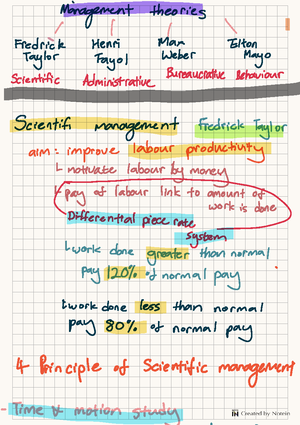 Management theories
Fredrick Henri Max Elton
Taylor Fayol Weber Mayo
Scientific Administrative Bureaucrative Behaviour
Scientific management Fredrick Taylor
aim: improve labour productivity
motivate labour by money
pay of labour link to amount of
work is done
Differential piece rate
system
work done greater than normal
pay 120% of normal pay
work done less than normal
pay 80% of normal pay
4 Principle of Scientific management
- Time & motion study
Created by Notein